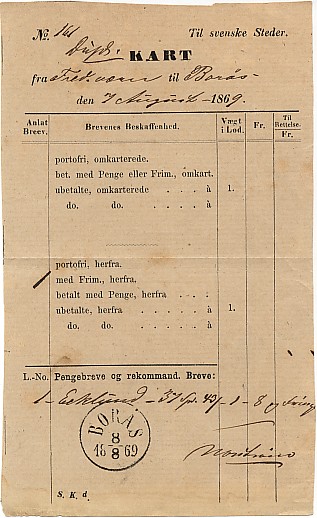 No. 161 Til svenske Steder.
Dupl.
KART
fra Fredværn til Borås
den 7 August 1869.
Anlat Breev. Brevenes Beskaffenhed. Vægt i Lod. Fr. Til Rettelse. Fr.
portofri, omkarterede.
bet. med Penge eller Frim., omkart.
ubetalte, omkarterede . . . à 1.
do. do. . . . . à
portofri, herfra.
med Frim., herfra.
betalt med Penge, herfra . . :
ubetalte, herfra . . . . . à 1.
do. do. . . . . à
L.-No. Pengebreve og rekommand. Breve:
1 - Ecklund - 31 43 - 1 - 8
BORÅS
8
8
1869
S. K. d.